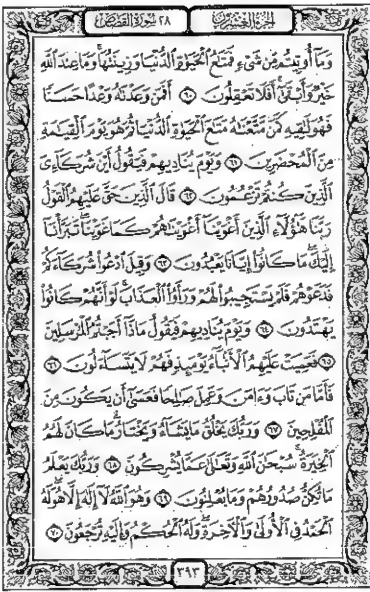 الجزء العشرون ٢٨ سورة القصص
وَمَآ أُوتِيتُم مِّن شَىْءٍ فَمَتَـٰعُ ٱلْحَيَوٰةِ ٱلدُّنْيَا وَزِينَتُهَا ۚ وَمَا عِندَ ٱللَّهِ
خَيْرٌ وَأَبْقَىٰٓ ۚ أَفَلَا تَعْقِلُونَ ٦٠ أَفَمَن وَعَدْنَـٰهُ وَعْدًا حَسَنًا
فَهُوَ لَـٰقِيهِ كَمَن مَّتَّعْنَـٰهُ مَتَـٰعَ ٱلْحَيَوٰةِ ٱلدُّنْيَا ثُمَّ هُوَ يَوْمَ ٱلْقِيَـٰمَةِ
مِنَ ٱلْمُحْضَرِينَ ٦١ وَيَوْمَ يُنَادِيهِمْ فَيَقُولُ أَيْنَ شُرَكَآءِىَ
ٱلَّذِينَ كُنتُمْ تَزْعُمُونَ ٦٢ قَالَ ٱلَّذِينَ حَقَّ عَلَيْهِمُ ٱلْقَوْلُ
رَبَّنَا هَـٰٓؤُلَآءِ ٱلَّذِينَ أَغْوَيْنَآ أَغْوَيْنَـٰهُمْ كَمَا غَوَيْنَا ۖ تَبَرَّأْنَآ
إِلَيْكَ ۖ مَا كَانُوٓا۟ إِيَّانَا يَعْبُدُونَ ٦٣ وَقِيلَ ٱدْعُوا۟ شُرَكَآءَكُمْ
فَدَعَوْهُمْ فَلَمْ يَسْتَجِيبُوا۟ لَهُمْ وَرَأَوُا۟ ٱلْعَذَابَ ۚ لَوْ أَنَّهُمْ كَانُوا۟
يَهْتَدُونَ ٦٤ وَيَوْمَ يُنَادِيهِمْ فَيَقُولُ مَاذَآ أَجَبْتُمُ ٱلْمُرْسَلِينَ
٦٥ فَعَمِيَتْ عَلَيْهِمُ ٱلْأَنۢبَآءُ يَوْمَئِذٍ فَهُمْ لَا يَتَسَآءَلُونَ ٦٦
فَأَمَّا مَن تَابَ وَءَامَنَ وَعَمِلَ صَـٰلِحًا فَعَسَىٰٓ أَن يَكُونَ مِنَ
ٱلْمُفْلِحِينَ ٦٧ وَرَبُّكَ يَخْلُقُ مَا يَشَآءُ وَيَخْتَارُ ۗ مَا كَانَ لَهُمُ
ٱلْخِيَرَةُ ۚ سُبْحَـٰنَ ٱللَّهِ وَتَعَـٰلَىٰ عَمَّا يُشْرِكُونَ ٦٨ وَرَبُّكَ يَعْلَمُ
مَا تُكِنُّ صُدُورُهُمْ وَمَا يُعْلِنُونَ ٦٩ وَهُوَ ٱللَّهُ لَآ إِلَـٰهَ إِلَّا هُوَ ۖ لَهُ
ٱلْحَمْدُ فِى ٱلْأُولَىٰ وَٱلْـَٔاخِرَةِ ۖ وَلَهُ ٱلْحُكْمُ وَإِلَيْهِ تُرْجَعُونَ ٧٠
٣٩٣